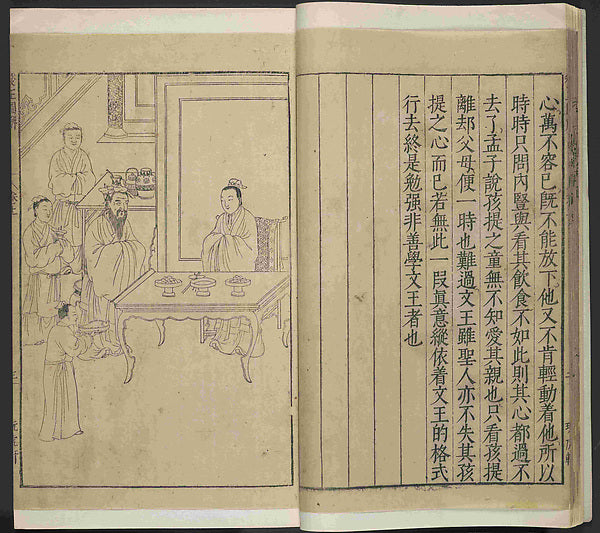 心萬不容已旣不能放下他又不肯輕動着他所以
時時只問內豎與看其飮食不如此則其心都過不
去了孟子說孩提之童無不知愛其親也只看孩提
離却父母便一時也難過文王雖聖人亦不失其孩
提之心而已若無此一段眞意縱依着文王的格式
行去終是勉强非善學文王者也